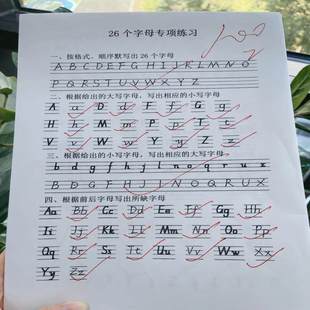 26个字母专项练习
一、按格式、顺序默写出26个字母
A B C D E F G H I J K L M N O
P Q R S T U V W X Y Z
二、根据给出的大写字母，写出相应的小写字母
A a D d F f G g
H h M m P p T t
V v W w Y y Z z
三、根据给出的小写字母，写出相应的大写字母
b d g f h j l n o q r u x
B D G F H J L N O Q R U X
四、根据前后字母写出所缺字母
Aa Bb Cc Dd Ee Ff Gg Hh
Ii Jj Kk Ll Mm Nn Oo Pp
Qq Rr Ss Tt Uu Vv Ww Xx
Yy Zz